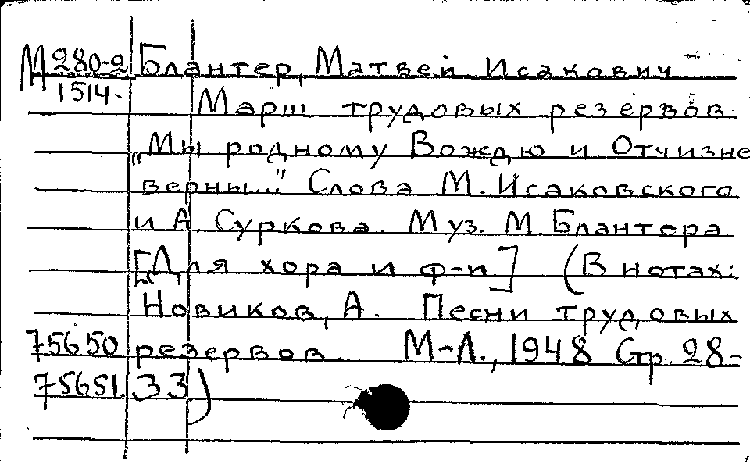 М 280-2 Блантер, Матвей Исакович
1514. Марш трудовых резервов.
„Мы родному Вождю и Отчизне
верны..." Слова М. Исаковского
и А. Суркова. Муз. М. Блантера
[Для хора и ф-п.] (В нотах:
Новиков, А. Песни трудовых
75650 резервов. М-Л., 1948 Стр. 28-
75651. 33)